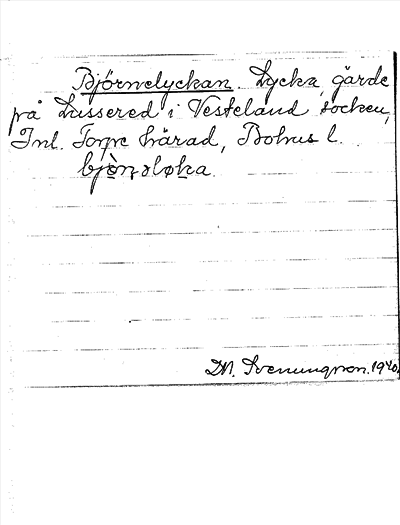 Björnelyckan. Lycka, gärde
på Lussered i Vesteland socken,
Inl. Torpe härad, Bohus l.
M. Svenungson. 1940.